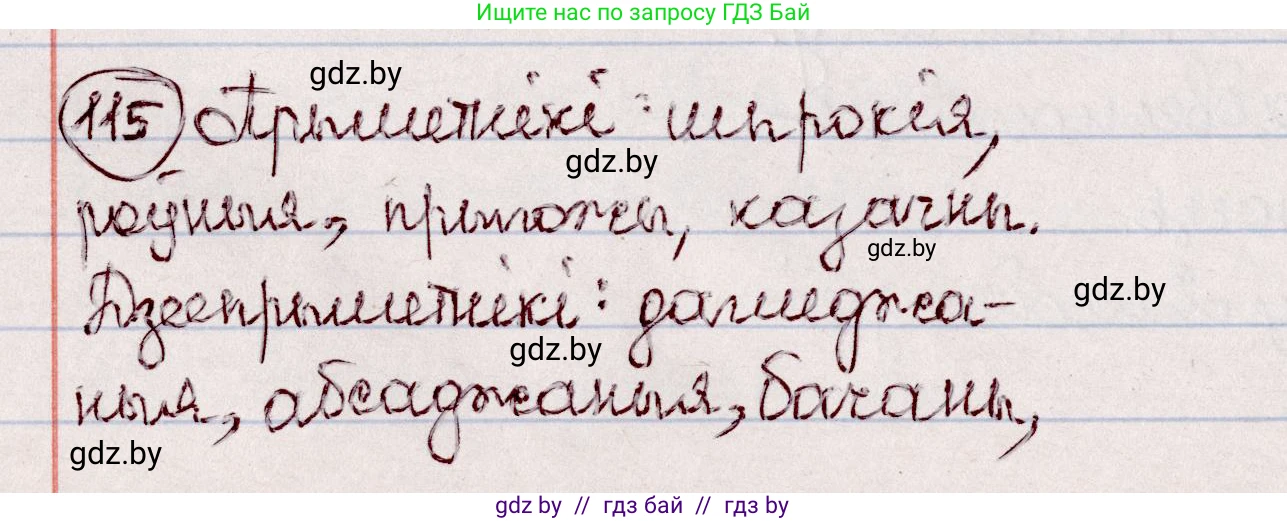 Ищите нас по запросу ГДЗ Бай
gdz.by
115 Прыметнікі: шырокія,
gdz.by
роўныя, прыгожы, казачны.
gdz.by
Дзеепрыметнікі: дагледжа-
gdz.by
gdz.by
ныя, абсаджаныя, бачаны,
gdz.by
gdz by // гдз бай // gdz by